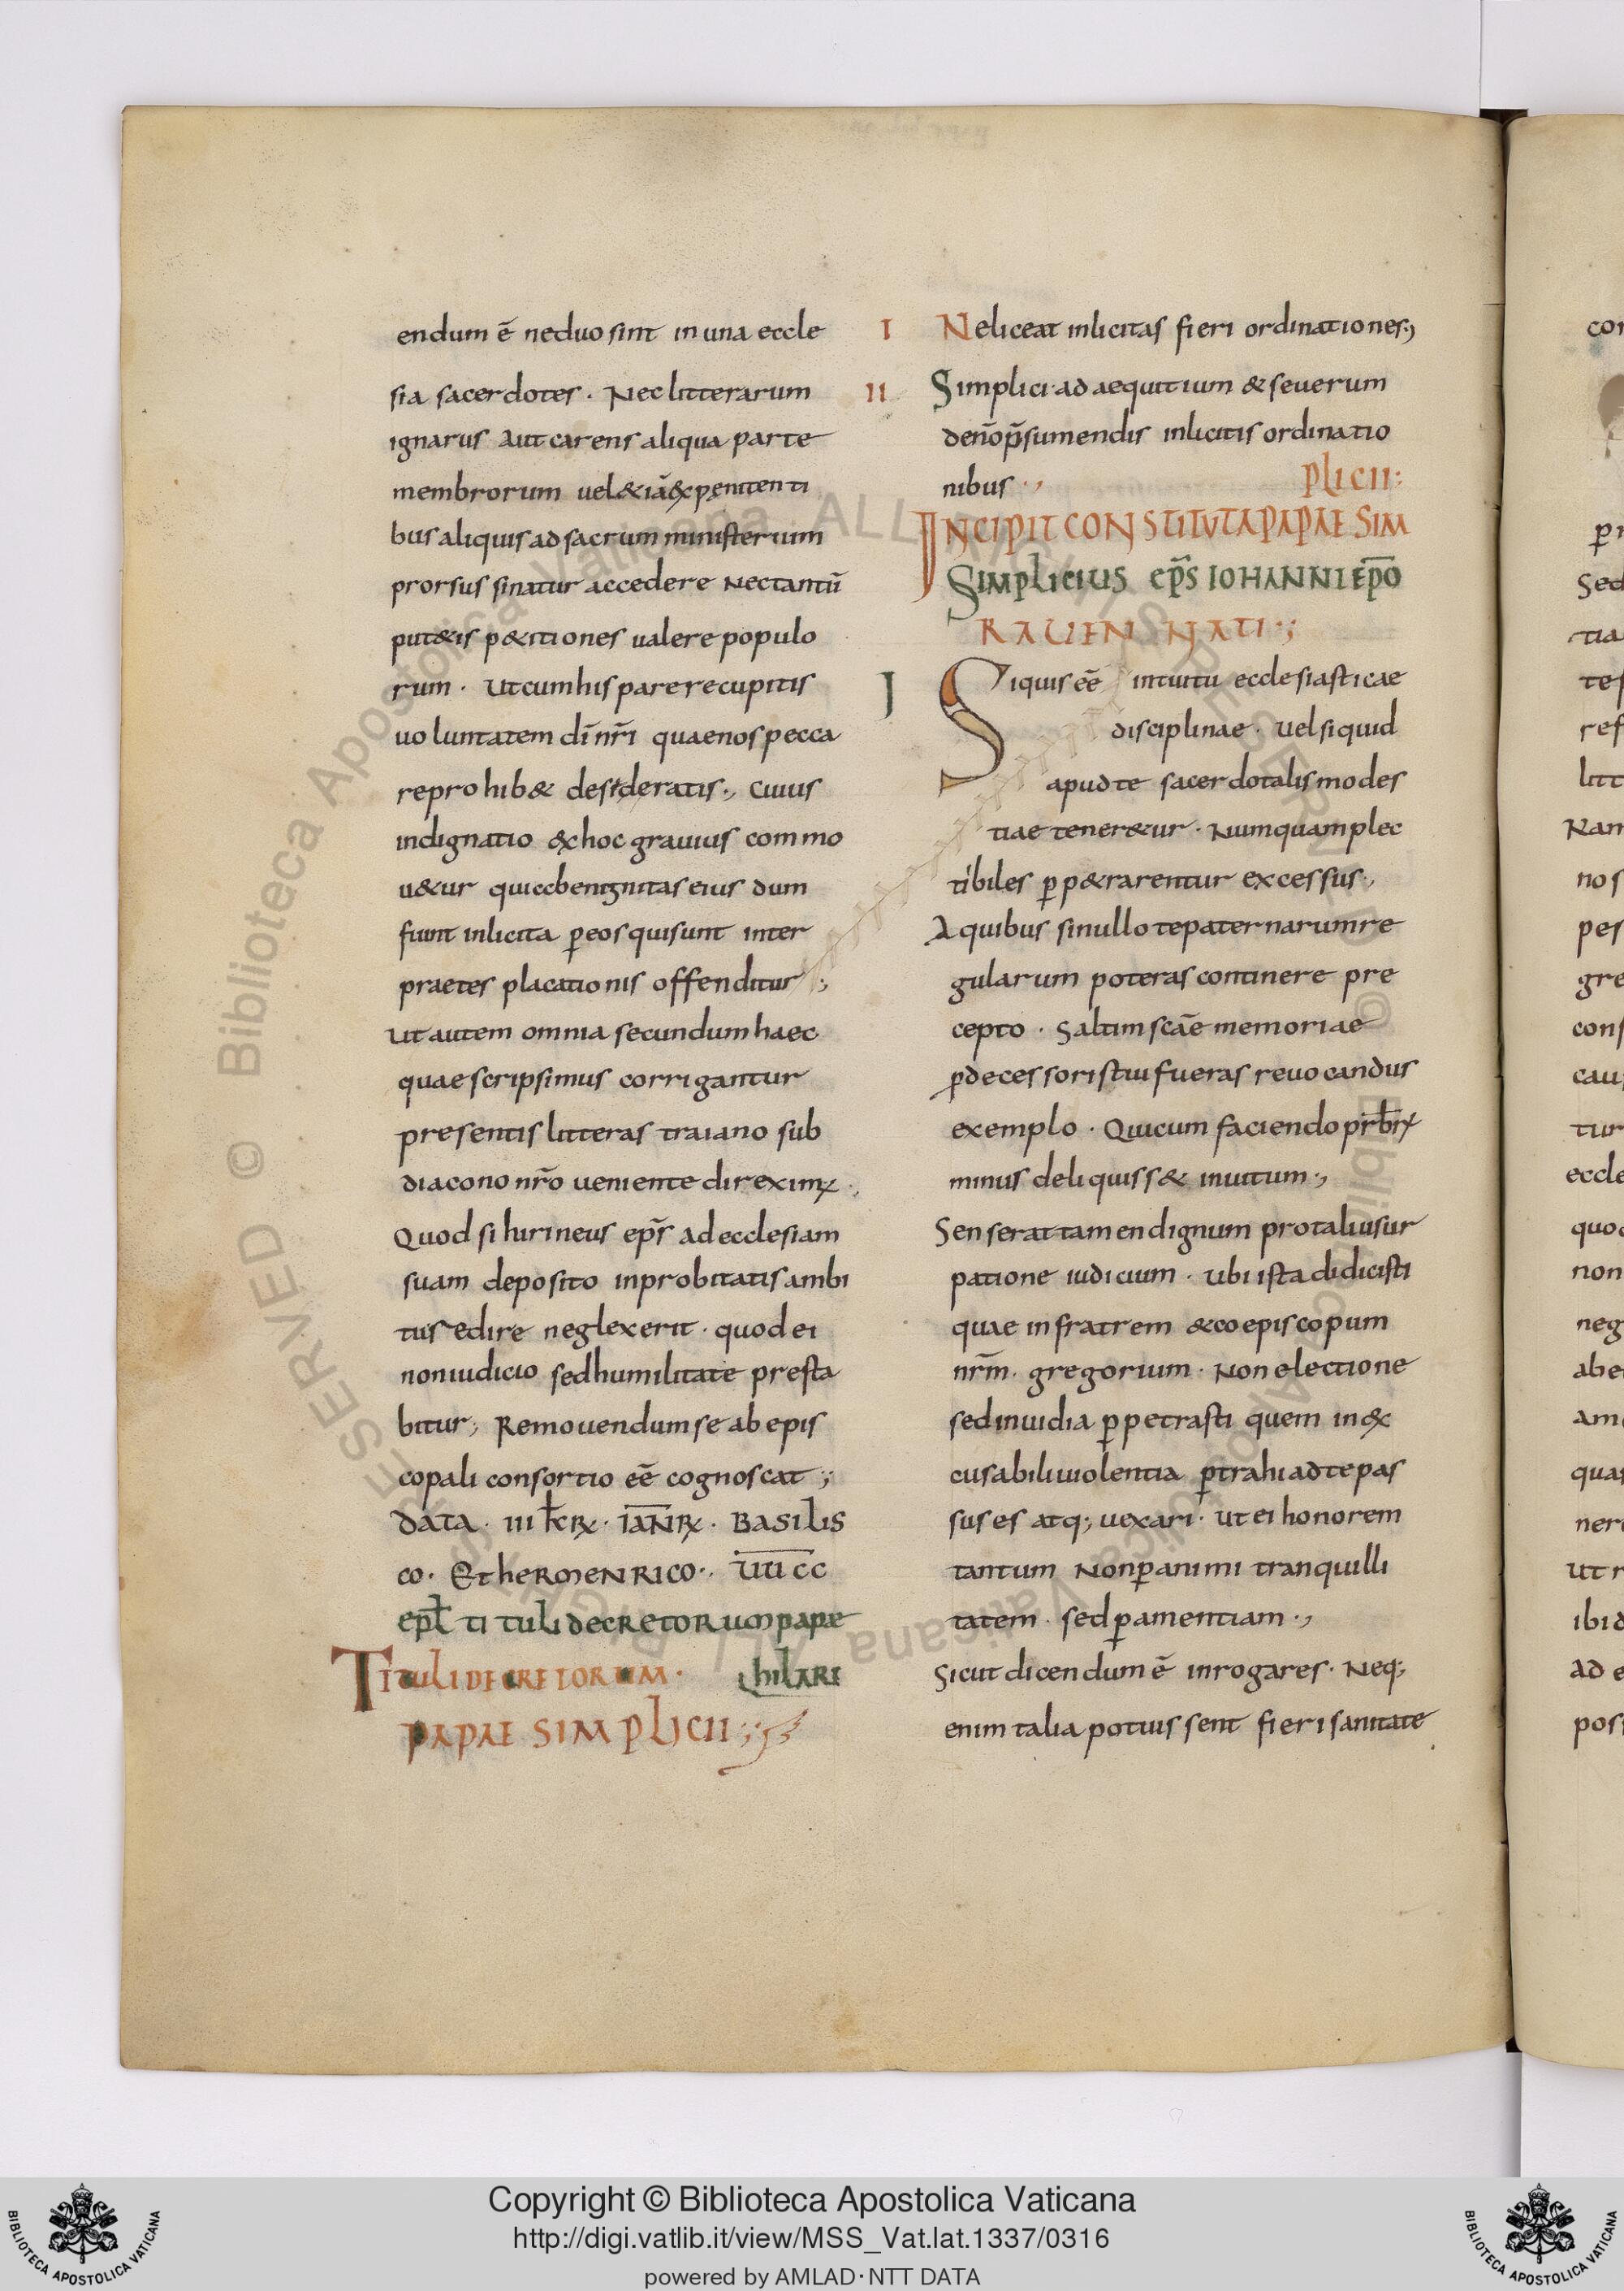 endum ē neduo sint in una eccle
sia sacerdotes. Nec litterarum
ignarus aut carens aliqua parte
membrorum uel &iā &x pęnitenti
bus aliquis ad sacrum ministerium
prorsus sinatur accedere Nectantū
put&is p&itiones ualere populo
rum. ut cum his parere cupitis
uoluntatem dī nr̄i quaenos pecca
re prohib& desideratis., cuius
indignatio &x hoc grauius commo
u&ur quiccbenignitas eius dum
fiunt inlicita p̲eos qui sunt inter
praetes placationis offenditur.;
ut autem omnia secundum haec
quae scripsimus corrigantur
presentis litteras traiano sub
diacono nr̄o ueniente direxim;
Quod si hirineus ep̄s ad ecclesiam
suam deposito inprobitatis ambi
tus edire neglexerit. quod ei
non iudicio sed humilitate presta
bitur; Remouendum se ab epis
copali consortio eē cognoscat.;
data. iii kł. IAN̄R. Basilis
co. Et hermenrico.,
epł tituli decretorum papae
hilari
Tituli decretorum.
papae simplicii.;
I Neliceat inlicitas fieri ordinationes.,
II Simplici. ad aequitium & seuerum
denōp̄sumendis inlicitis ordinatio
nibus.,
plicii:
Incipit constituta papae sim
Simplicius ep̄s iohanni ep̄o
rauennati.;
I Siquis eē intuitu ecclesiasticae
disciplinae. uel si quid
apud te sacerdotalis modes
tiae tener&ur. Numquam plec
tibiles p̲p&rarentur excessus.,
A quibus si nullo te paternarum re
gularum poteras continere pre
cepto. Saltim scāe memoriae
p̲decessoris tui fueras reuocandus
exemplo. Qui cum faciendo prb̄r
minus deliquiss& inuitum.,
Senserat tamen dignum pro tali usur
patione iudicium. ubi ista didicisti
quae in fratrem & coepiscopum
nr̄m. gregorium. Non electione
sed inuidia p̲petrasti quem in&x
cusabili uiolentia p̲trahi ad te pas
sus es atq; uexari. ut ei honorem
tantum Non p̲ animi tranquilli
tatem. sed p̲ amentiam.,
Sicut dicendum ē inrogares. Neq;
enim talia potuissent fieri sanitate
Copyright © Biblioteca Apostolica Vaticana
http://digi.vatlib.it/view/MSS_Vat.lat.1337/0316
powered by AMLAD·NTT DATA
BIBLIOTECA APOSTOLICA VATICANA
BIBLIOTECA APOSTOLICA VATICANA